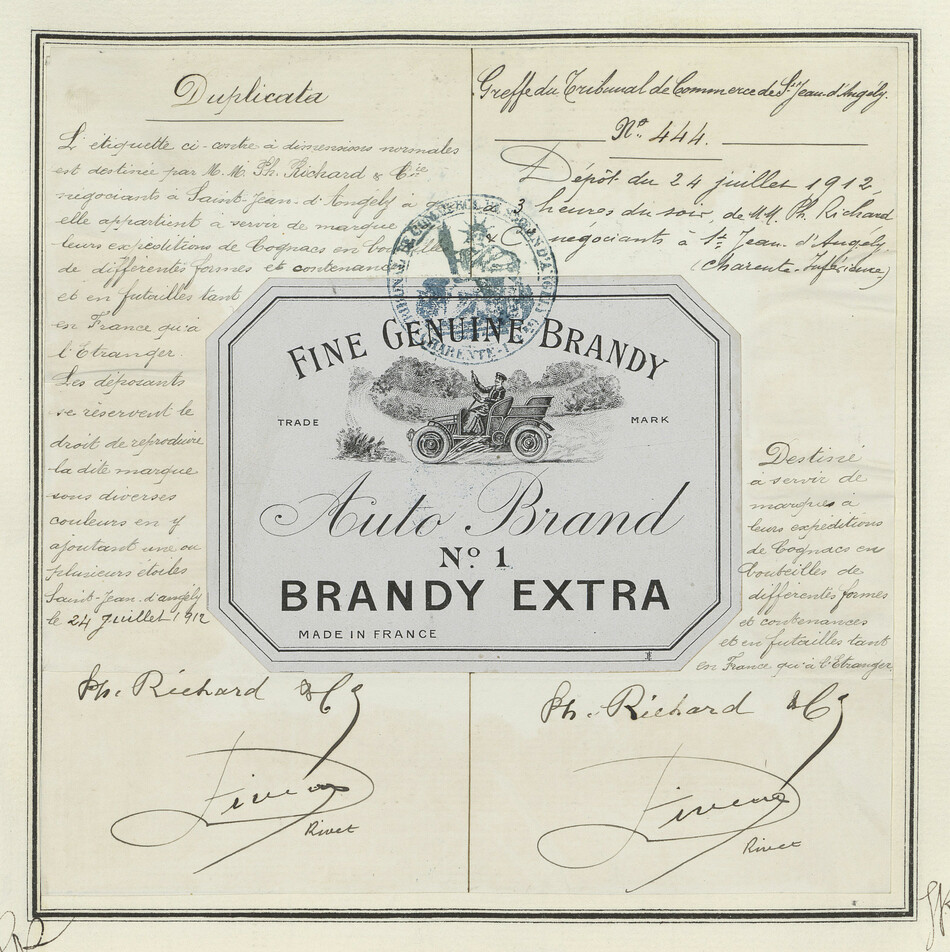 Duplicata
L'étiquette ci-contre à dimensions normales
est destinée par M.M. Ph. Richard & Cie
négociants à Saint-Jean-d'Angély à
elle appartient à servir de marque
leurs expéditions de Cognacs en bouteilles
de différentes formes et contenances
et en futailles tant
en France qu'à
l'Etranger.
Les déposants
se réservent le
droit de reproduire
la dite marque
sous diverses
couleurs en y
ajoutant une ou
plusieurs étoiles
Saint-Jean-d'angély
le 24 Juillet 1912
Ph. Richard & Co
Rivet
Greffe du Tribunal de Commerce de St Jean d'Angély.
No. 444.
Dépôt du 24 juillet 1912,
à 3 heures du soir, de MM. Ph. Richard
& Co négociants à St Jean d'Angély
(Charente-Inférieure)
FINE GENUINE BRANDY
TRADE MARK
Auto Brand
No. 1
BRANDY EXTRA
MADE IN FRANCE
Destiné
à servir de
marques à
leurs expéditions
de Cognacs en
bouteilles de
différentes formes
et contenances
et en futailles tant
en France qu'à l'Etranger
Ph. Richard & Co
Rivet